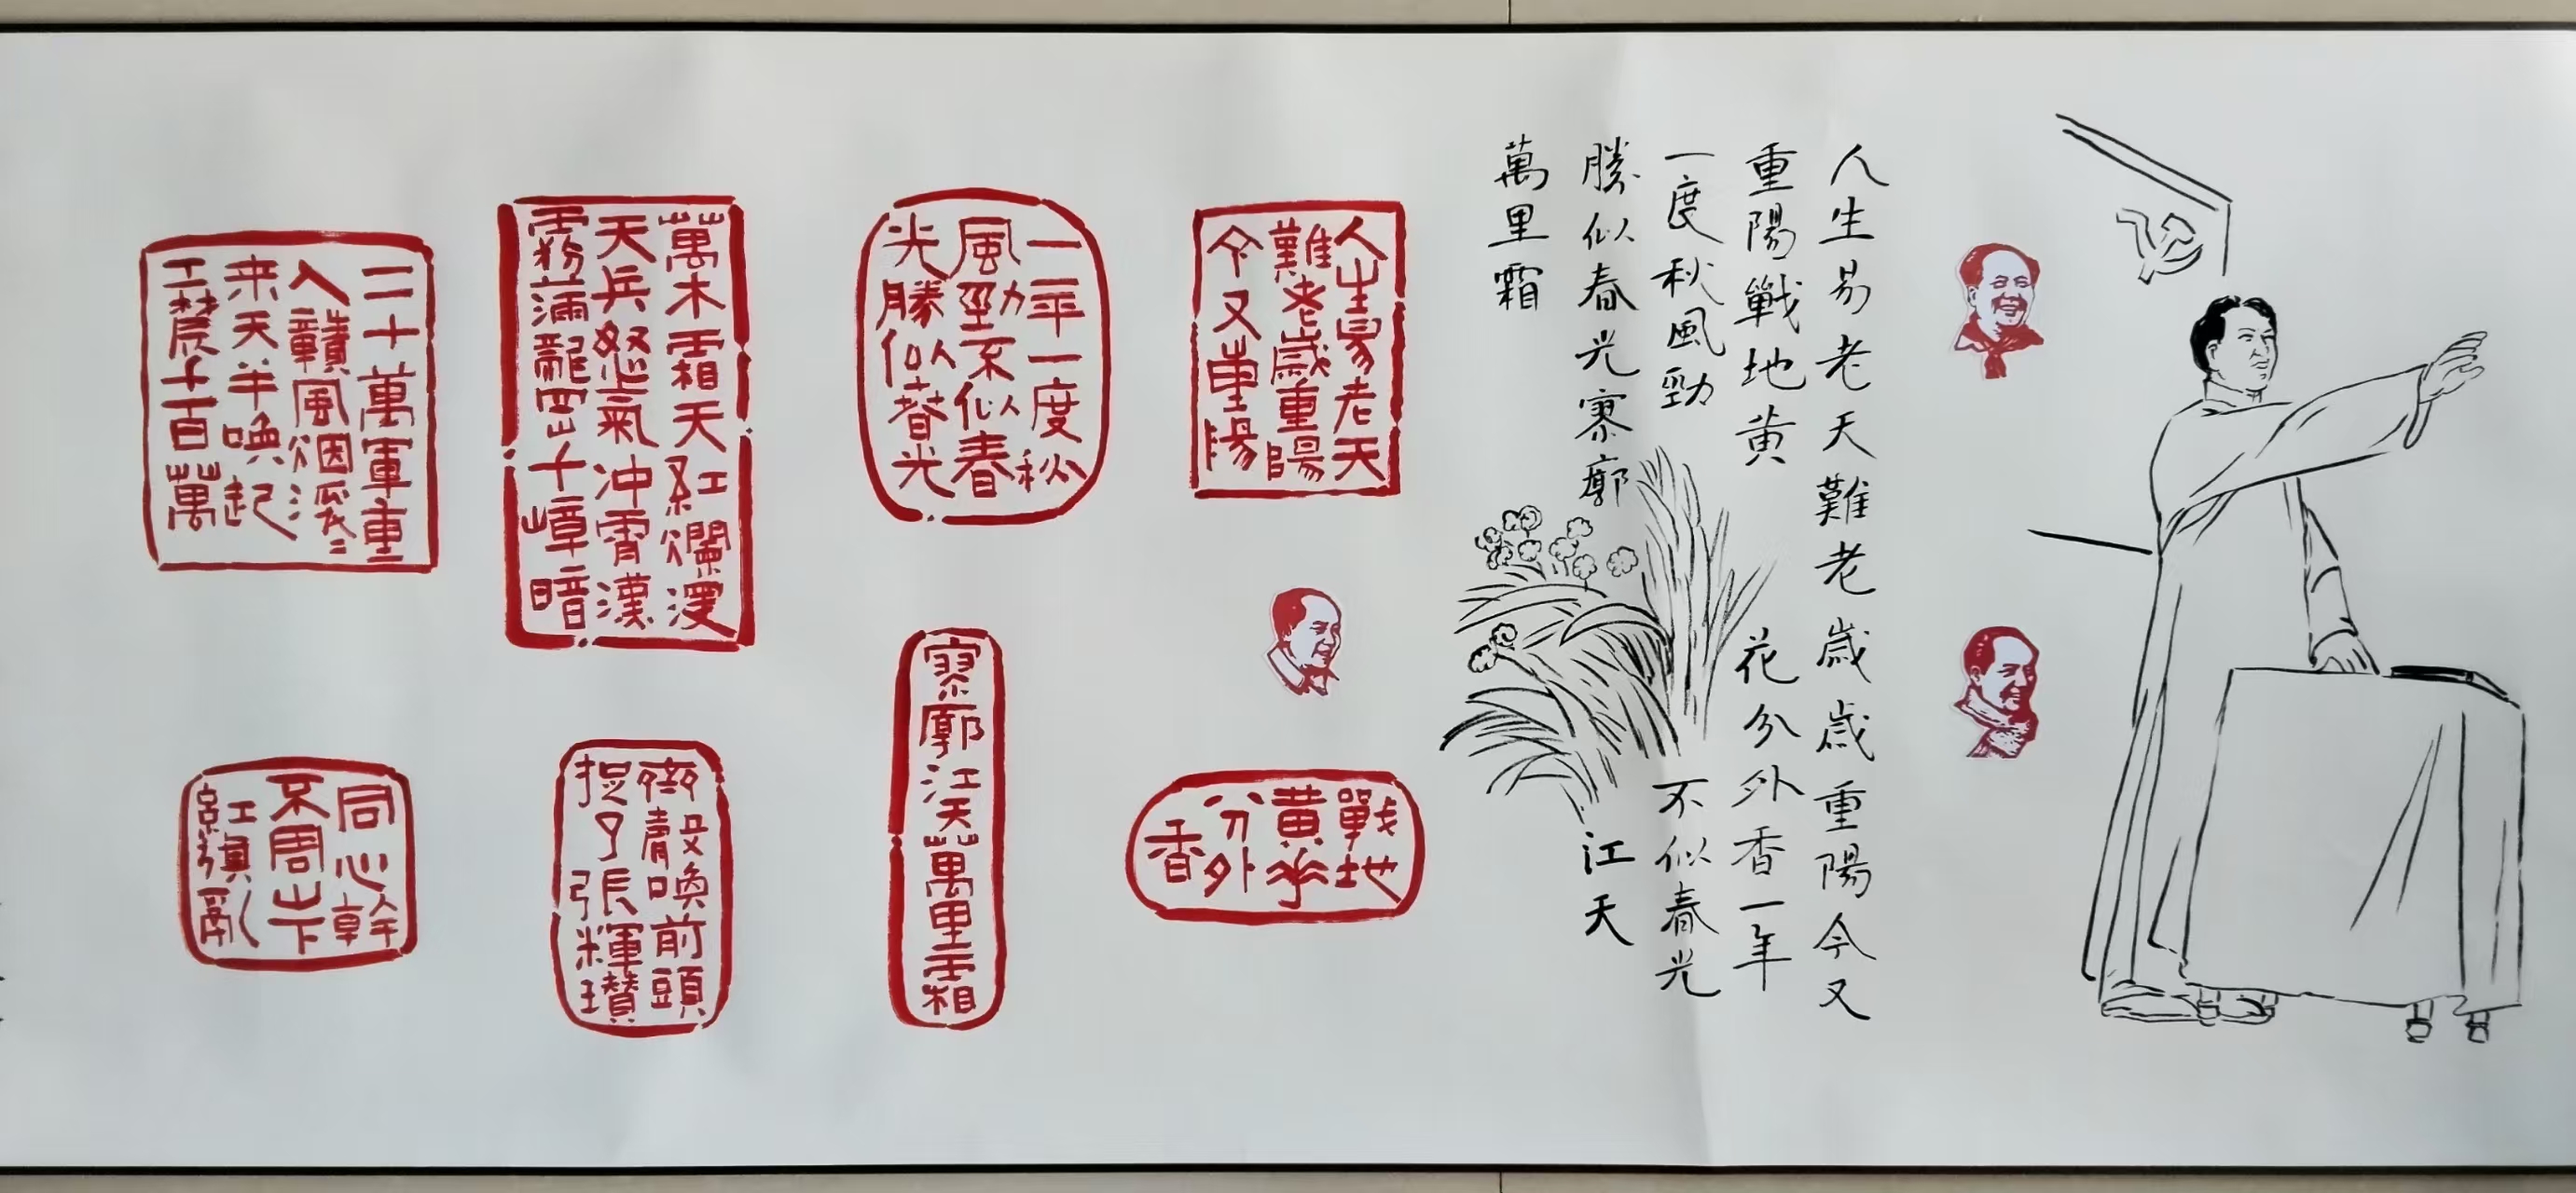 人生易老天難老歲歲重陽今又
重陽戰地黃花分外香一年
一度秋風勁不似春光
勝似春光寥廓江天
萬里霜
人生易老天
難老歲重陽
今又重陽
戰地
黃花
分外
香
一年一度秋
風勁不似春
光勝似春光
寥廓江天萬里霜
萬木霜天紅爛漫
天兵怒氣冲霄漢
霧滿龍岡千嶂暗
齊聲喚前頭
捉了張輝瓚
二十萬軍重
入贛風烟滾々
来天半喚起
工農千百萬
同心幹
不周山下
紅旗亂